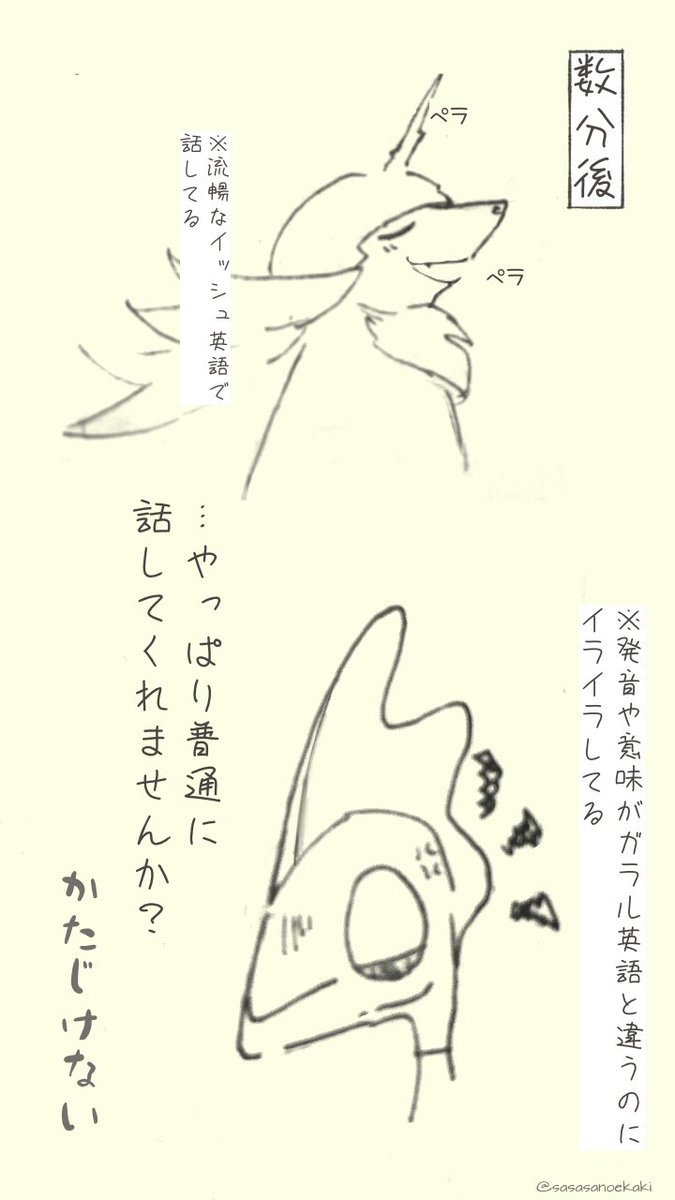 数分後
ペラ
ペラ
※流暢なイッシュ英語で
話してる
※発音や意味がガラル英語と違うのに
イライラしてる
…やっぱり普通に
話してくれませんか？
かたじけない
@sasasanoekaki